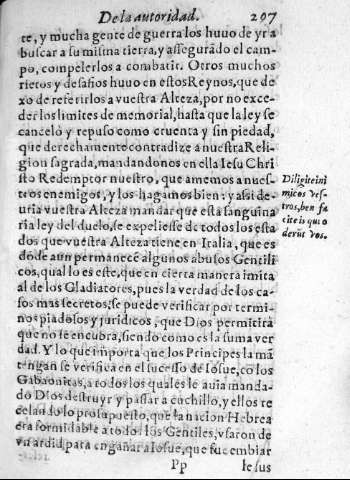 De la autoridad. 297
te, y mucha gente de guerra los huuo de yr a
buscar a su misma tierra, y assegurãdo el cam-
po, compelerlos a combatir. Otros muchos
rietos y desafios huuo en estos Reynos, que de
xo de referirlos a vuestra Alteza, por no exce-
der los limites de memorial, hasta que la ley se
cancelò y repuso como cruenta y sin piedad,
que derechamente contradize a nuestra Reli-
gion sagrada, mandandonos en ella Iesu Chri
sto Redemptor nuestro, que amemos a nues-
tros enemigos, y los hagamos bien: y assi de-
uria vuestra Alteza mandar que esta sanguina
ria ley del duelo, se expeliesse de todos los esta
dos que vuestra Alteza tiene en Italia, que es
dõde aun permanecẽ algunos abusos Gentili
cos, qual lo es este, que en cierta manera imita
al de los Gladiatores, pues la verdad de los ca-
sos mas secretos, se puede verificar por termi-
nos piadosos y juridicos, que Dios permitirà
que no se encubra, siendo como es la suma ver
dad. Y lo que importa que los Principes la mã
tengan se verifica en el sucesso de Iosue, cõ los
Gabaonitas, a todos los quales le auia manda-
do Dios destruyr y passar a cuchillo, y ellos re
celando lo prosupuesto, que la nacion Hebrea
era formidable a todos los Gentiles, vsaron de
vn ardid, para engañar a Iosue, que fue embiar
Pp Iesus
Diligite ini
micos ves-
tros, ben fa
cite is qui o
derũt vos.